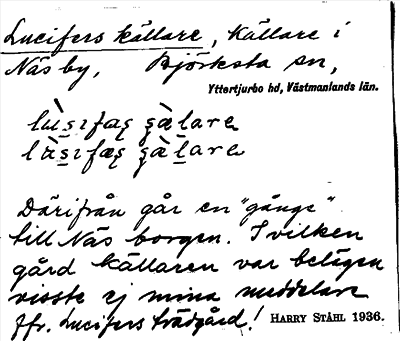 Lucifers källare, källare i
Näsby, Björksta sn,
Yttertjurbo hd, Västmanlands län.
lù̀sɪfæʂ ʂæ̀lare
Därifrån går en "gångs"
till Näs borgen. I vilken
gård källaren var belägen
visste ej mina meddelare
Jfr. Lucifers trädgård!
HARRY STÅHL 1936.